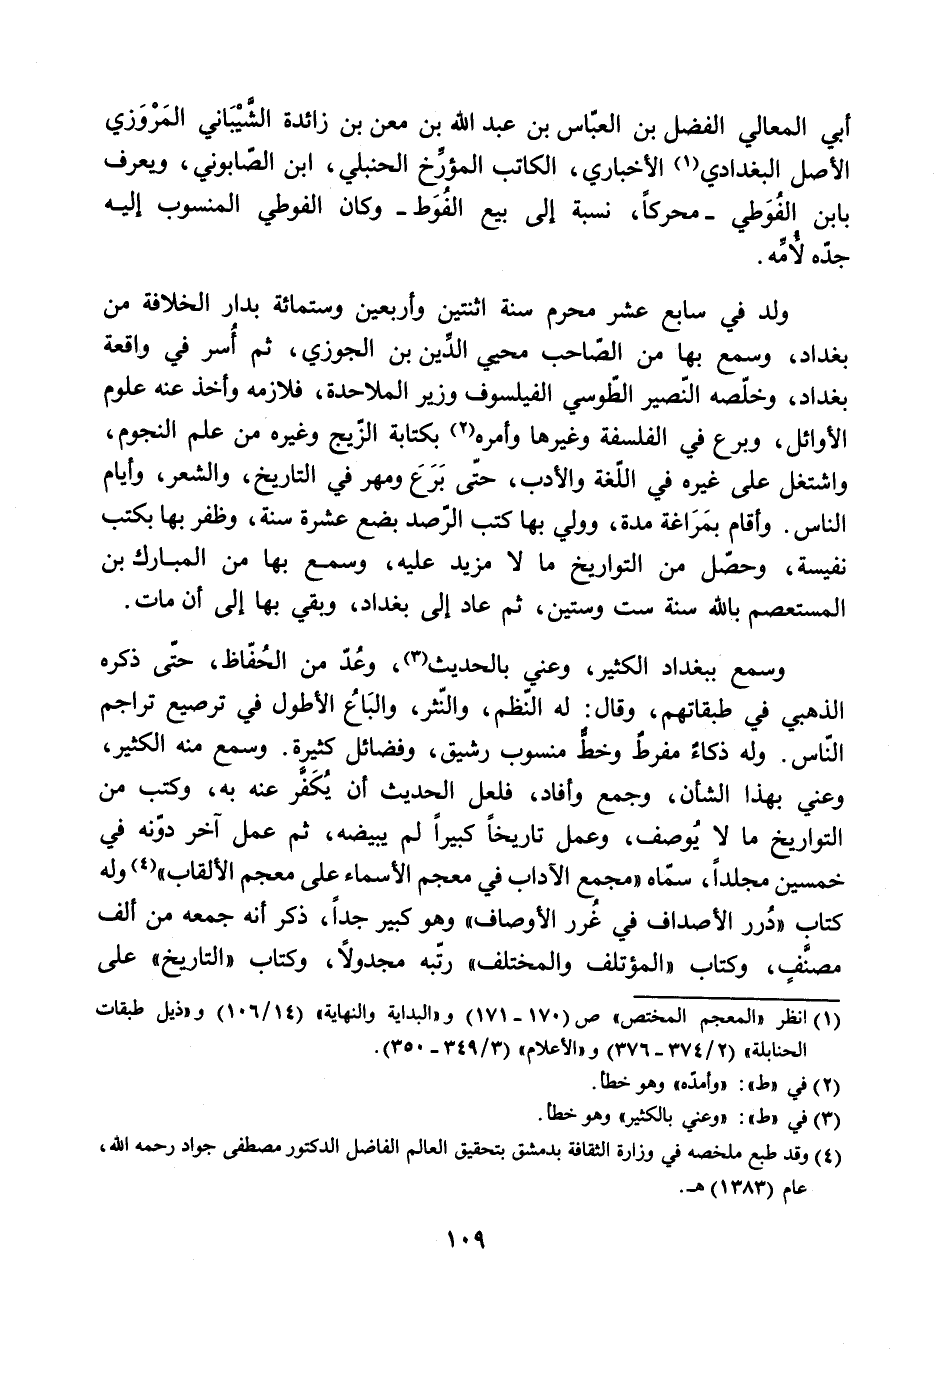 أبي المعالي الفضل بن العبّاس بن عبد الله بن معن بن زائدة الشَّيْبَاني المَرْوَزي
الأصل البغدادي(١) الأخباري، الكاتب المؤرِّخ الحنبلي، ابن الصّابوني، ويعرف
بابن الفُوَطي ـ محركاً، نسبة إلى بيع الفُوَط ـ وكان الفوطي المنسوب إليه
جدّه لأُمِّه.
ولد في سابع عشر محرم سنة اثنتين وأربعين وستمائة بدار الخلافة من
بغداد، وسمع بها من الصّاحب محيي الدِّين بن الجوزي، ثم أُسر في واقعة
بغداد، وخلّصه النّصير الطّوسي الفيلسوف وزير الملاحدة، فلازمه وأخذ عنه علوم
الأوائل، وبرع في الفلسفة وغيرها وأمره(٢) بكتابة الزّيج وغيره من علم النجوم،
واشتغل على غيره في اللّغة والأدب، حتّى بَرَعَ ومهر في التاريخ، والشعر، وأيام
الناس. وأقام بمَرَاغة مدة، وولي بها كتب الرّصد بضع عشرة سنة، وظفر بها بكتب
نفيسة، وحصّل من التواريخ ما لا مزيد عليه، وسمع بها من المبارك بن
المستعصم بالله سنة ست وستين، ثم عاد إلى بغداد، وبقي بها إلى أن مات.
وسمع ببغداد الكثير، وعني بالحديث(٣)، وعُدّ من الحُفّاظ، حتّى ذكره
الذهبي في طبقاتهم، وقال: له النّظم، والنّثر، والبَاعُ الأطول في ترصيع تراجم
النّاس. وله ذكاءٌ مفرطٌ وخطٌّ منسوب رشيق، وفضائل كثيرة. وسمع منه الكثير،
وعني بهذا الشأن، وجمع وأفاد، فلعل الحديث أن يُكَفَّر عنه به، وكتب من
التواريخ ما لا يُوصف، وعمل تاريخاً كبيراً لم يبيضه، ثم عمل آخر دوّنه في
خمسين مجلداً، سمّاه «مجمع الآداب في معجم الأسماء على معجم الألقاب»(٤) وله
كتاب «دُرر الأصداف في غُرر الأوصاف» وهو كبير جداً، ذكر أنه جمعه من ألف
مصنَّفٍ، وكتاب «المؤتلف والمختلف» رتّبه مجدولاً، وكتاب «التاريخ» على
(١) انظر «المعجم المختص» ص (١٧٠ ـ ١٧١) و«البداية والنهاية» (١٠٦/١٤) و«ذيل طبقات
الحنابلة» (٣٧٤/٢ ـ ٣٧٦) و«الأعلام» (٣٤٩/٣ ـ ٣٥٠).
(٢) في «ط»: «وأمدّه» وهو خطأ.
(٣) في «ط»: «وعني بالكثير» وهو خطأ.
(٤) وقد طبع ملخصه في وزارة الثقافة بدمشق بتحقيق العالم الفاضل الدكتور مصطفى جواد رحمه الله،
عام (١٣٨٣) هـ.
١٠٩